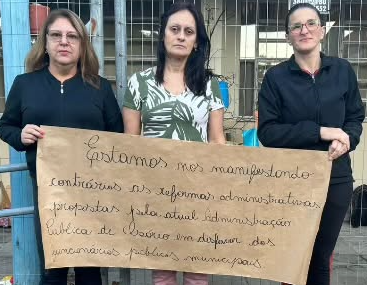 Estamos nos manifestando
contrários as reformas administrativas
propostas pela atual Administração
Pública de Osório em desfavor dos
funcionários públicos municipais.